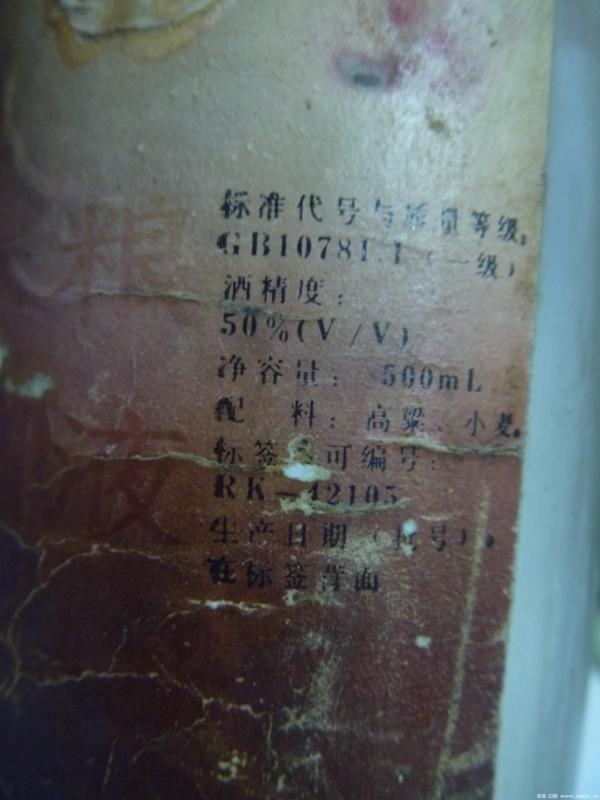 粮
液
标准代号与质量等级:
GB10781.1(一级)
酒精度:
50%(V/V)
净容量: 500mL
配 料: 高粱、小麦。
标签认可编号:
RK-42105
生产日期(批号):
在标签背面